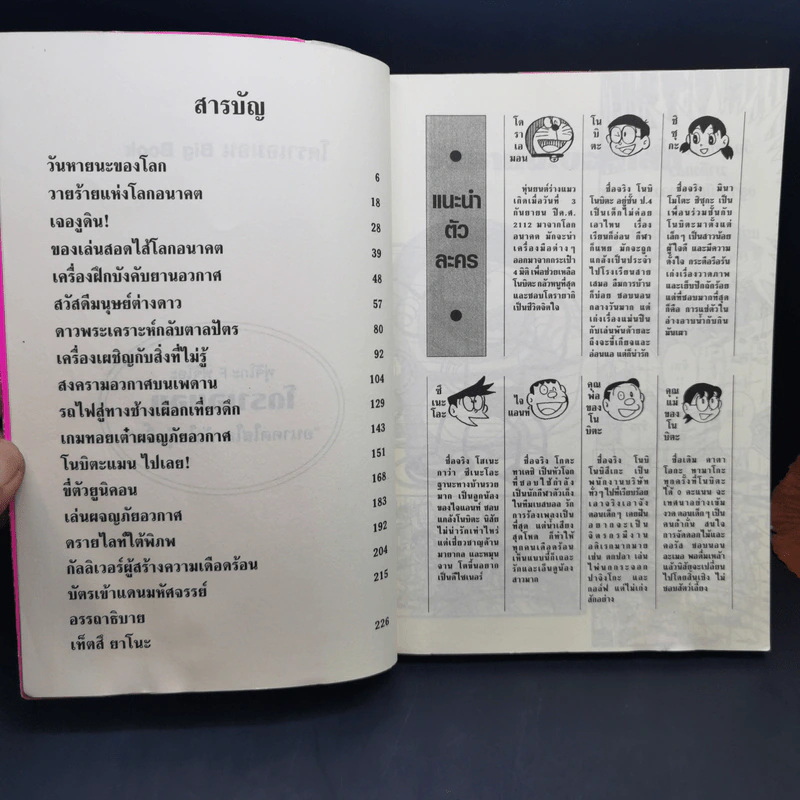 สารบัญ
วันหายนะของโลก 6
วายร้ายแห่งโลกอนาคต 18
เจองูดิน! 28
ของเล่นสอดไส้โลกอนาคต 39
เครื่องฝึกบังคับยานอวกาศ 48
สวัสดีมนุษย์ต่างดาว 57
ดาวพระเคราะห์กลับตาลปัตร 80
เครื่องเผชิญกับสิ่งที่ไม่รู้ 92
สงครามอวกาศบนเพดาน 104
รถไฟสู่ทางช้างเผือกเที่ยวดึก 129
เกมทอยเต๋าผจญภัยอวกาศ 143
โนบิตะแมน ไปเลย! 151
ขี่ตัวยูนิคอน 168
เล่นผจญภัยอวกาศ 183
ดรายไลท์ใต้พิภพ 192
กัลลิเวอร์ผู้สร้างความเดือดร้อน 204
บัตรเข้าแดนมหัศจรรย์ 215
อรรถาธิบาย
เท็ตสึ ยาโนะ 226
แนะนำ
ตัว
ละคร
โดราเอมอน
หุ่นยนต์ร่างแมว
เกิดเมื่อวันที่ 3
กันยายน ปีค.ศ.
2112 มาจากโลก
อนาคต มักจะนำ
เครื่องมือต่างๆ
ออกมาจากกระเป๋า
4 มิติ เพื่อช่วยเหลือ
โนบิตะ กลัวหนูที่สุด
และชอบโดรายากิ
เป็นชีวิตจิตใจ
โนบิตะ
ชื่อจริง โนบิ
โนบิตะ อยู่ชั้น ป.4
เป็นเด็กไม่ค่อย
เอาไหน เรื่อง
เรียนก็อ่อน กีฬา
ก็แหย มักจะถูก
แกล้งเป็นประจำ
ไปโรงเรียนสาย
เสมอ ลืมการบ้าน
ก็บ่อย ชอบนอน
กลางวันมาก แต่
เก่งเรื่องแม่นปืน
กับเล่นพันด้ายละ
ถึงจะขี้เกียจและ
อ่อนแอ แต่ก็น่ารัก
ชิซุกะ
ชื่อจริง มินา
โมโตะ ชิซุกะ เป็น
เพื่อนร่วมชั้นกับ
โนบิตะมาตั้งแต่
เล็กๆ เป็นสาวน้อย
ผู้ใจดี และมีความ
ตั้งใจ กระตือรือร้น
เก่งเรื่องวาดภาพ
และเย็บปักถักร้อย
แต่ที่ชอบมากที่สุด
ก็คือ การแช่ตัวใน
อ่างอาบน้ำกับกิน
มันเผา
ซึเนะโอะ
ชื่อจริง โฮเนะ
กาว่า ซึเนะโอะ
ฐานะทางบ้านรวย
มาก เป็นลูกน้อง
ของไจแอนท์ ชอบ
แกล้งโนบิตะ นิสัย
ไม่น่ารักเท่าไหร่
แต่เชี่ยวชาญด้าน
มายากล และหมุน
จาน โตขึ้นอยาก
เป็นดีไซเนอร์
ไจแอนท์
ชื่อจริง โกดะ
ทาเคชิ เป็นหัวโจก
ที่ชอบใช้กำลัง
เป็นนักกีฬาตัวเก็ง
ในทีมเบสบอล รัก
การร้องเพลงเป็น
ที่สุด แต่น้ำเสียง
สุดโหด ก็ทำให้
ทุกคนเดือดร้อน
เห็นแบบนี้ก็เถอะ
รักและเอ็นดูน้อง
สาวมาก
คุณพ่อของโนบิตะ
ชื่อจริง โนบิ
โนบิสึเกะ เป็น
พนักงานบริษัท
ทั่วๆ ไปที่เรียบร้อย
เอาจริงเอาจัง
ตอนเด็กๆ เคยฝัน
อยากจะเป็น
จิตรกร มีงาน
อดิเรกมากมาย
เช่น ตกปลา เล่น
ไพ่นกกระจอก
ปาจิงโกะ และ
กอล์ฟ แต่ไม่เก่ง
สักอย่าง
คุณแม่ของโนบิตะ
ชื่อเดิม คาตา
โอกะ ทามาโกะ
ทุกครั้งที่โนบิตะ
ได้ 0 คะแนน จะ
เทศนาอย่างเข้ม
งวด ตอนเด็กๆ เป็น
คนก๋ากั่น สนใจ
การจัดดอกไม้และ
คอรัส ชอบนอน
ละเมอ พอดื่มเหล้า
แล้วนิสัยจะเปลี่ยน
ไปโดยสิ้นเชิง ไม่
ชอบสัตว์เลี้ยง